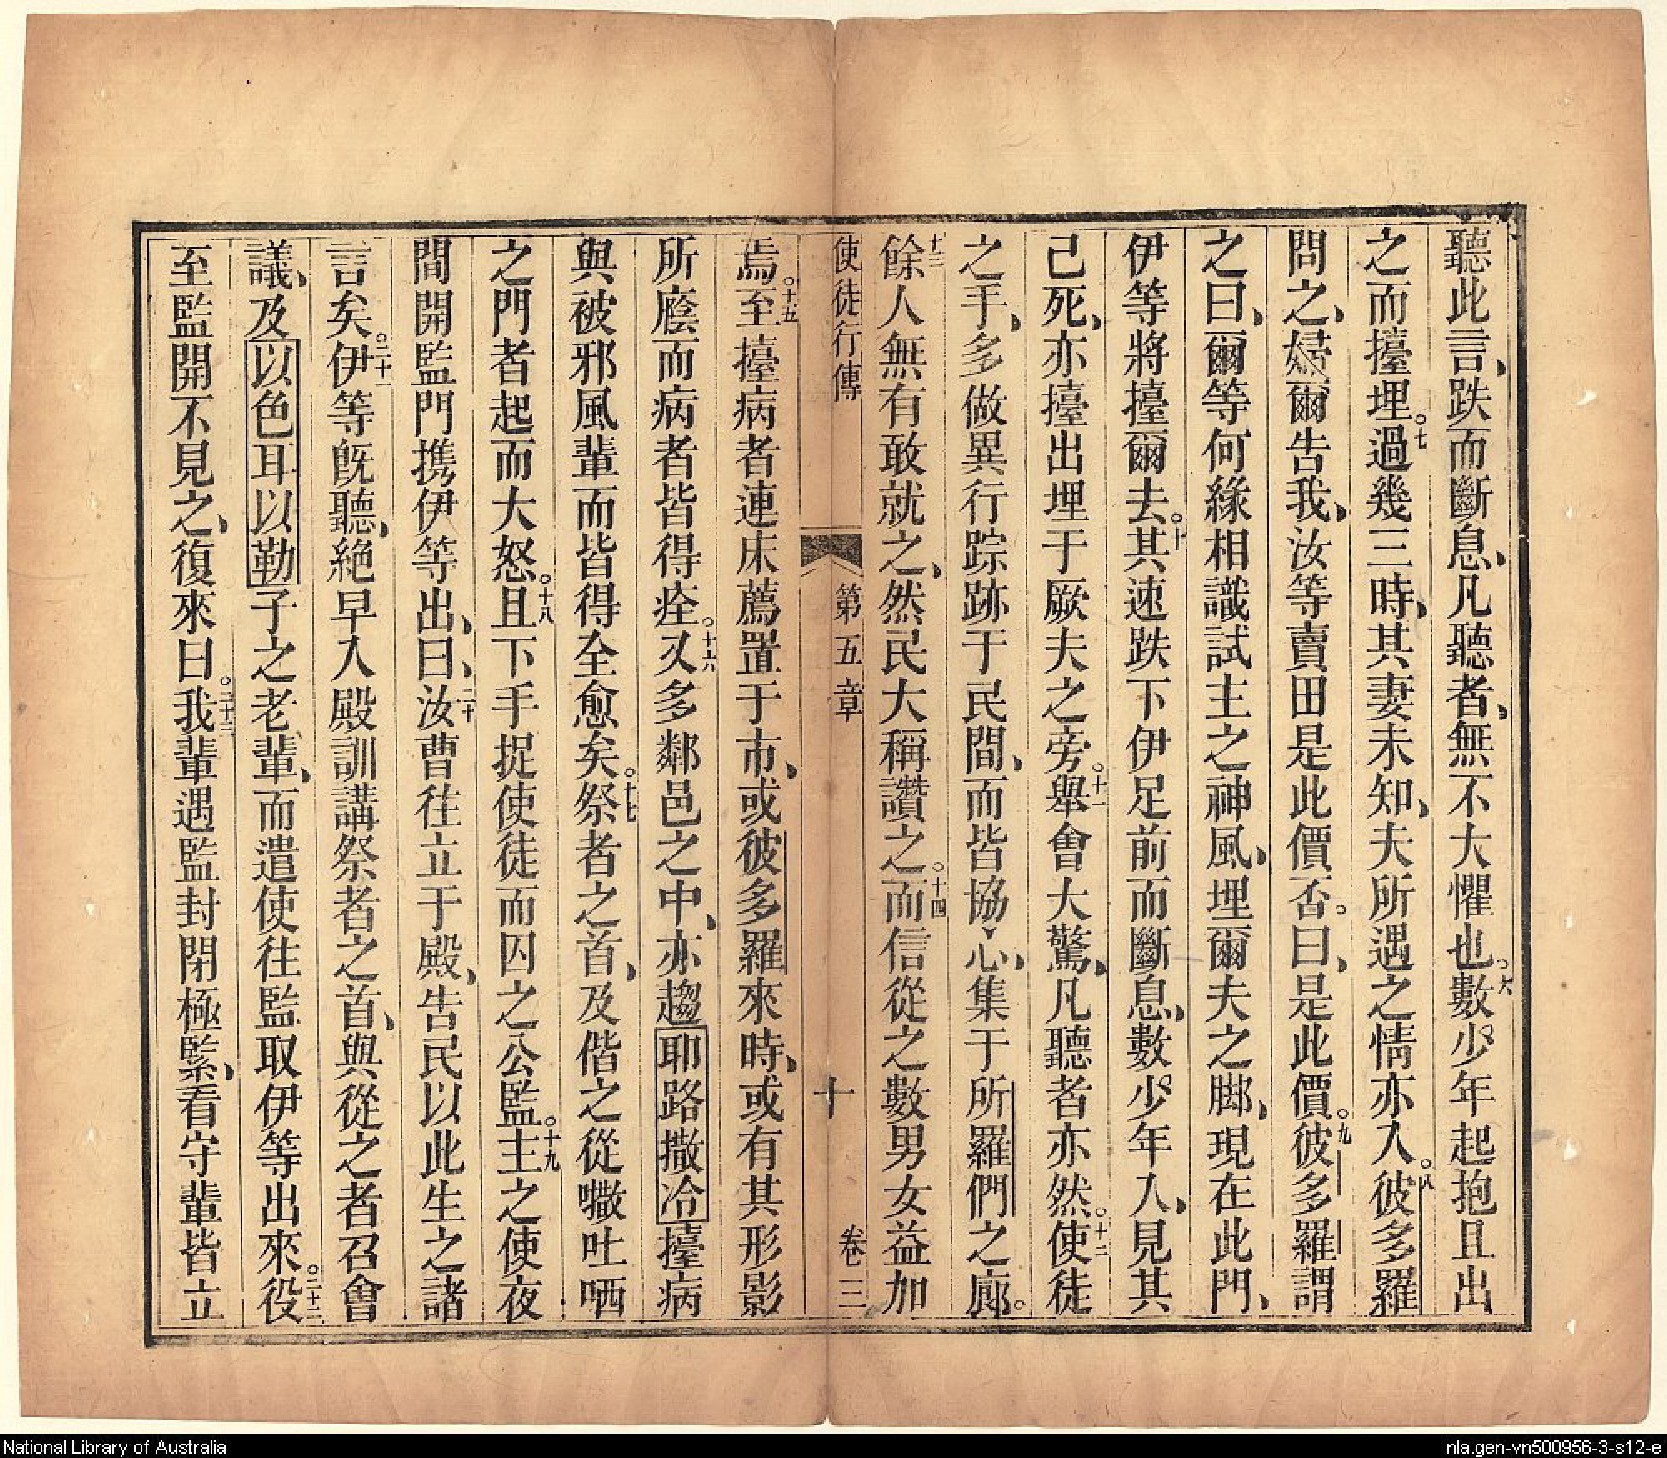 聽此言、跌而斷息、凡聽者、無不大懼也。六數少年起抱且出
之而擡埋。七過幾三時、其妻未知、夫所遇之情亦入。八彼多羅
問之、婦爾告我、汝等賣田是此價否。曰、是此價。九彼多羅謂
之曰、爾等何緣相識試主之神風、埋爾夫之脚、現在此門、
伊等將擡爾去。十其速跌下伊足前而斷息、數少年入、見其
己死、亦擡出埋于厥夫之旁。十一舉會大驚、凡聽者亦然。十二使徒
之手、多做異行踪跡于民間、而皆協心、集于所羅們之廊。
十三餘人無有敢就之、然民大稱讚之。十四而信從之數男女益加
使徒行傳 第五章 十 卷三
焉。十五至擡病者連床薦置于市、或彼多羅來時、或有其形影
所廕而病者皆得痊。十六又多鄰邑之中、亦趨耶路撒冷擡病
與被邪風輩而皆得全愈矣。十七祭者之首、及偕之從𡂡吐哂
之門者起而大怒。十八且下手捉使徒而囚之公監。十九主之使夜
間開監門携伊等出、曰、二十汝曹往立于殿、告民以此生之諸
言矣。二十一伊等旣聽、絶早入殿訓講祭者之首、與從之者召會
議、及以色耳以勒子之老輩、而遣使往監取伊等出來。二十二役
至監開不見之、復來曰。二十三我輩遇監封閉極緊、看守輩皆立
National Library of Australia
nla.gen-vn500956-3-s12-e